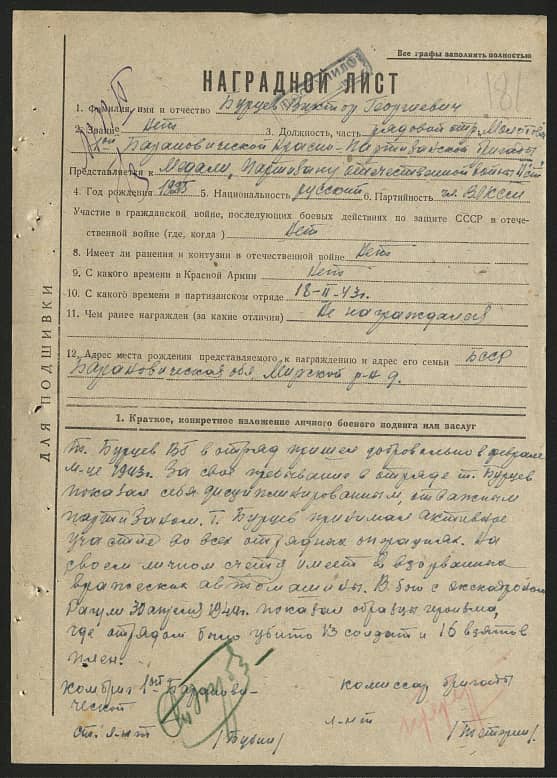 Все графы заполнять полностью
181
НАГРАДНОЙ ЛИСТ
1. Фамилия, имя и отчество Бурцев Виктор Георгиевич
2. Звание Нет 3. Должность, часть рядовой отр.
1ой Барановической Красно-Партизанской бригады
Представляется к Медали, Партизану отечественной войны II ст
4. Год рождения 1925 5. Национальность русский 6. Партийность чл. ВЛКСМ
Участие в гражданской войне, последующих боевых действиях по защите СССР в отече-
ственной войне (где, когда) Нет
8. Имеет ли ранения и контузии в отечественной войне Нет
9. С какого времени в Красной Армии Нет
10. С какого времени в партизанском отряде 18-II-43г.
11. Чем ранее награжден (за какие отличия) Не награждался
12. Адрес места рождения представляемого к награждению и адрес его семьи БССР
Барановическая обл Мирской р-н д.
ДЛЯ ПОДШИВКИ
1. Краткое, конкретное изложение личного боевого подвига или заслуг
Т. Бурцев ВГ в отряд пришел добровольно в феврале
м-це 1943г. За свое пребывание в отряде т. Бурцев
показал себя дисциплинированным, отважным
партизаном. Т. Бурцев принимал активное
участие во всех отрядных операциях. На
своем личном счету имеет 2 взорванных
вражеских автомашины. В бою с
30 апреля 1944г. показал образцы героизма,
где отрядом было убито 13 солдат и 16 взятов
плен.
Комбриг 1ой Баранови-
ческой
ст. л-нт
комиссар бригады
л-нт